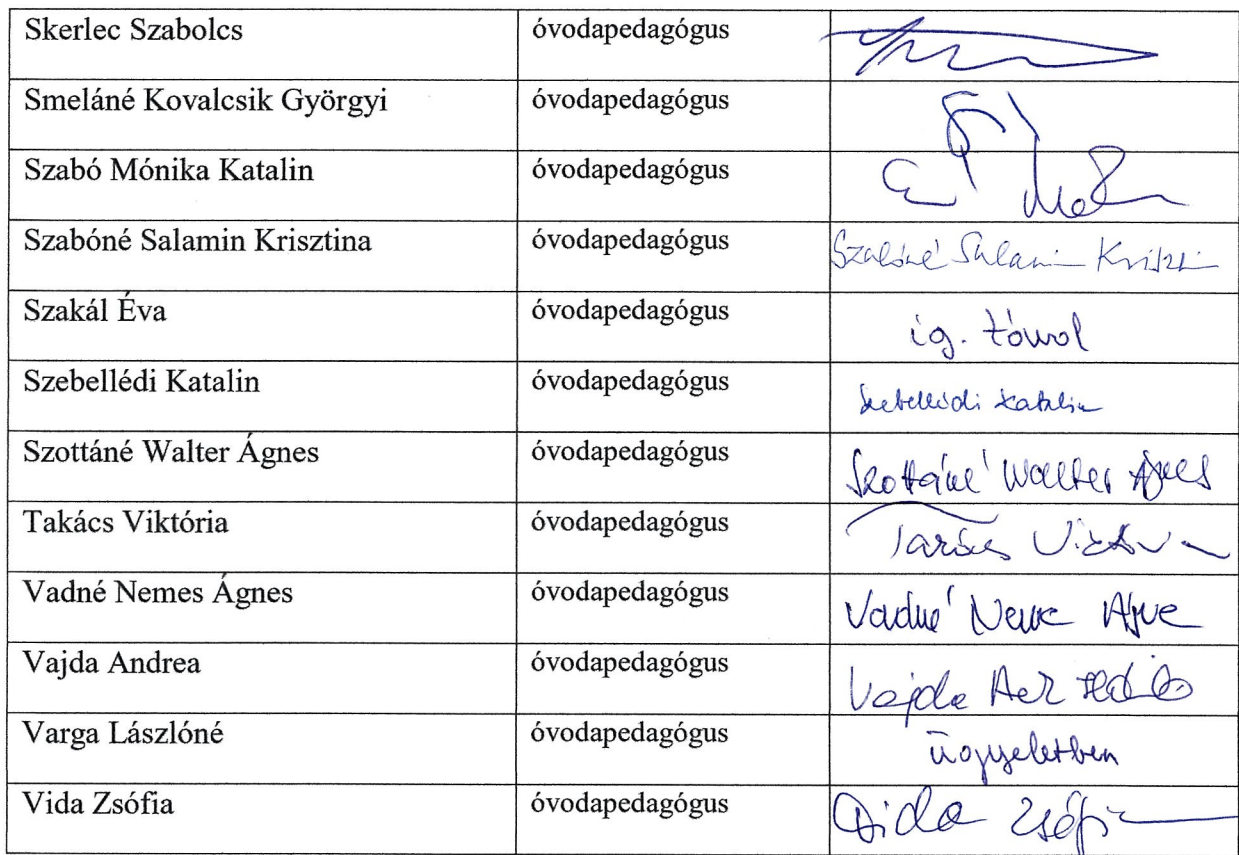 Skerlec Szabolcs óvodapedagógus
Smeláné Kovalcsik Györgyi óvodapedagógus
Szabó Mónika Katalin óvodapedagógus
Szabóné Salamin Krisztina óvodapedagógus Szabóné Salamin Kriszti
Szakál Éva óvodapedagógus ig. távol
Szebellédi Katalin óvodapedagógus Szebellédi Katalin
Szottáné Walter Ágnes óvodapedagógus Szottáné Walter Ágnes
Takács Viktória óvodapedagógus Takács Viktória
Vadné Nemes Ágnes óvodapedagógus Vadné Nemes Ágnes
Vajda Andrea óvodapedagógus Vajda
Varga Lászlóné óvodapedagógus ügyeletben
Vida Zsófia óvodapedagógus Vida Zsófia